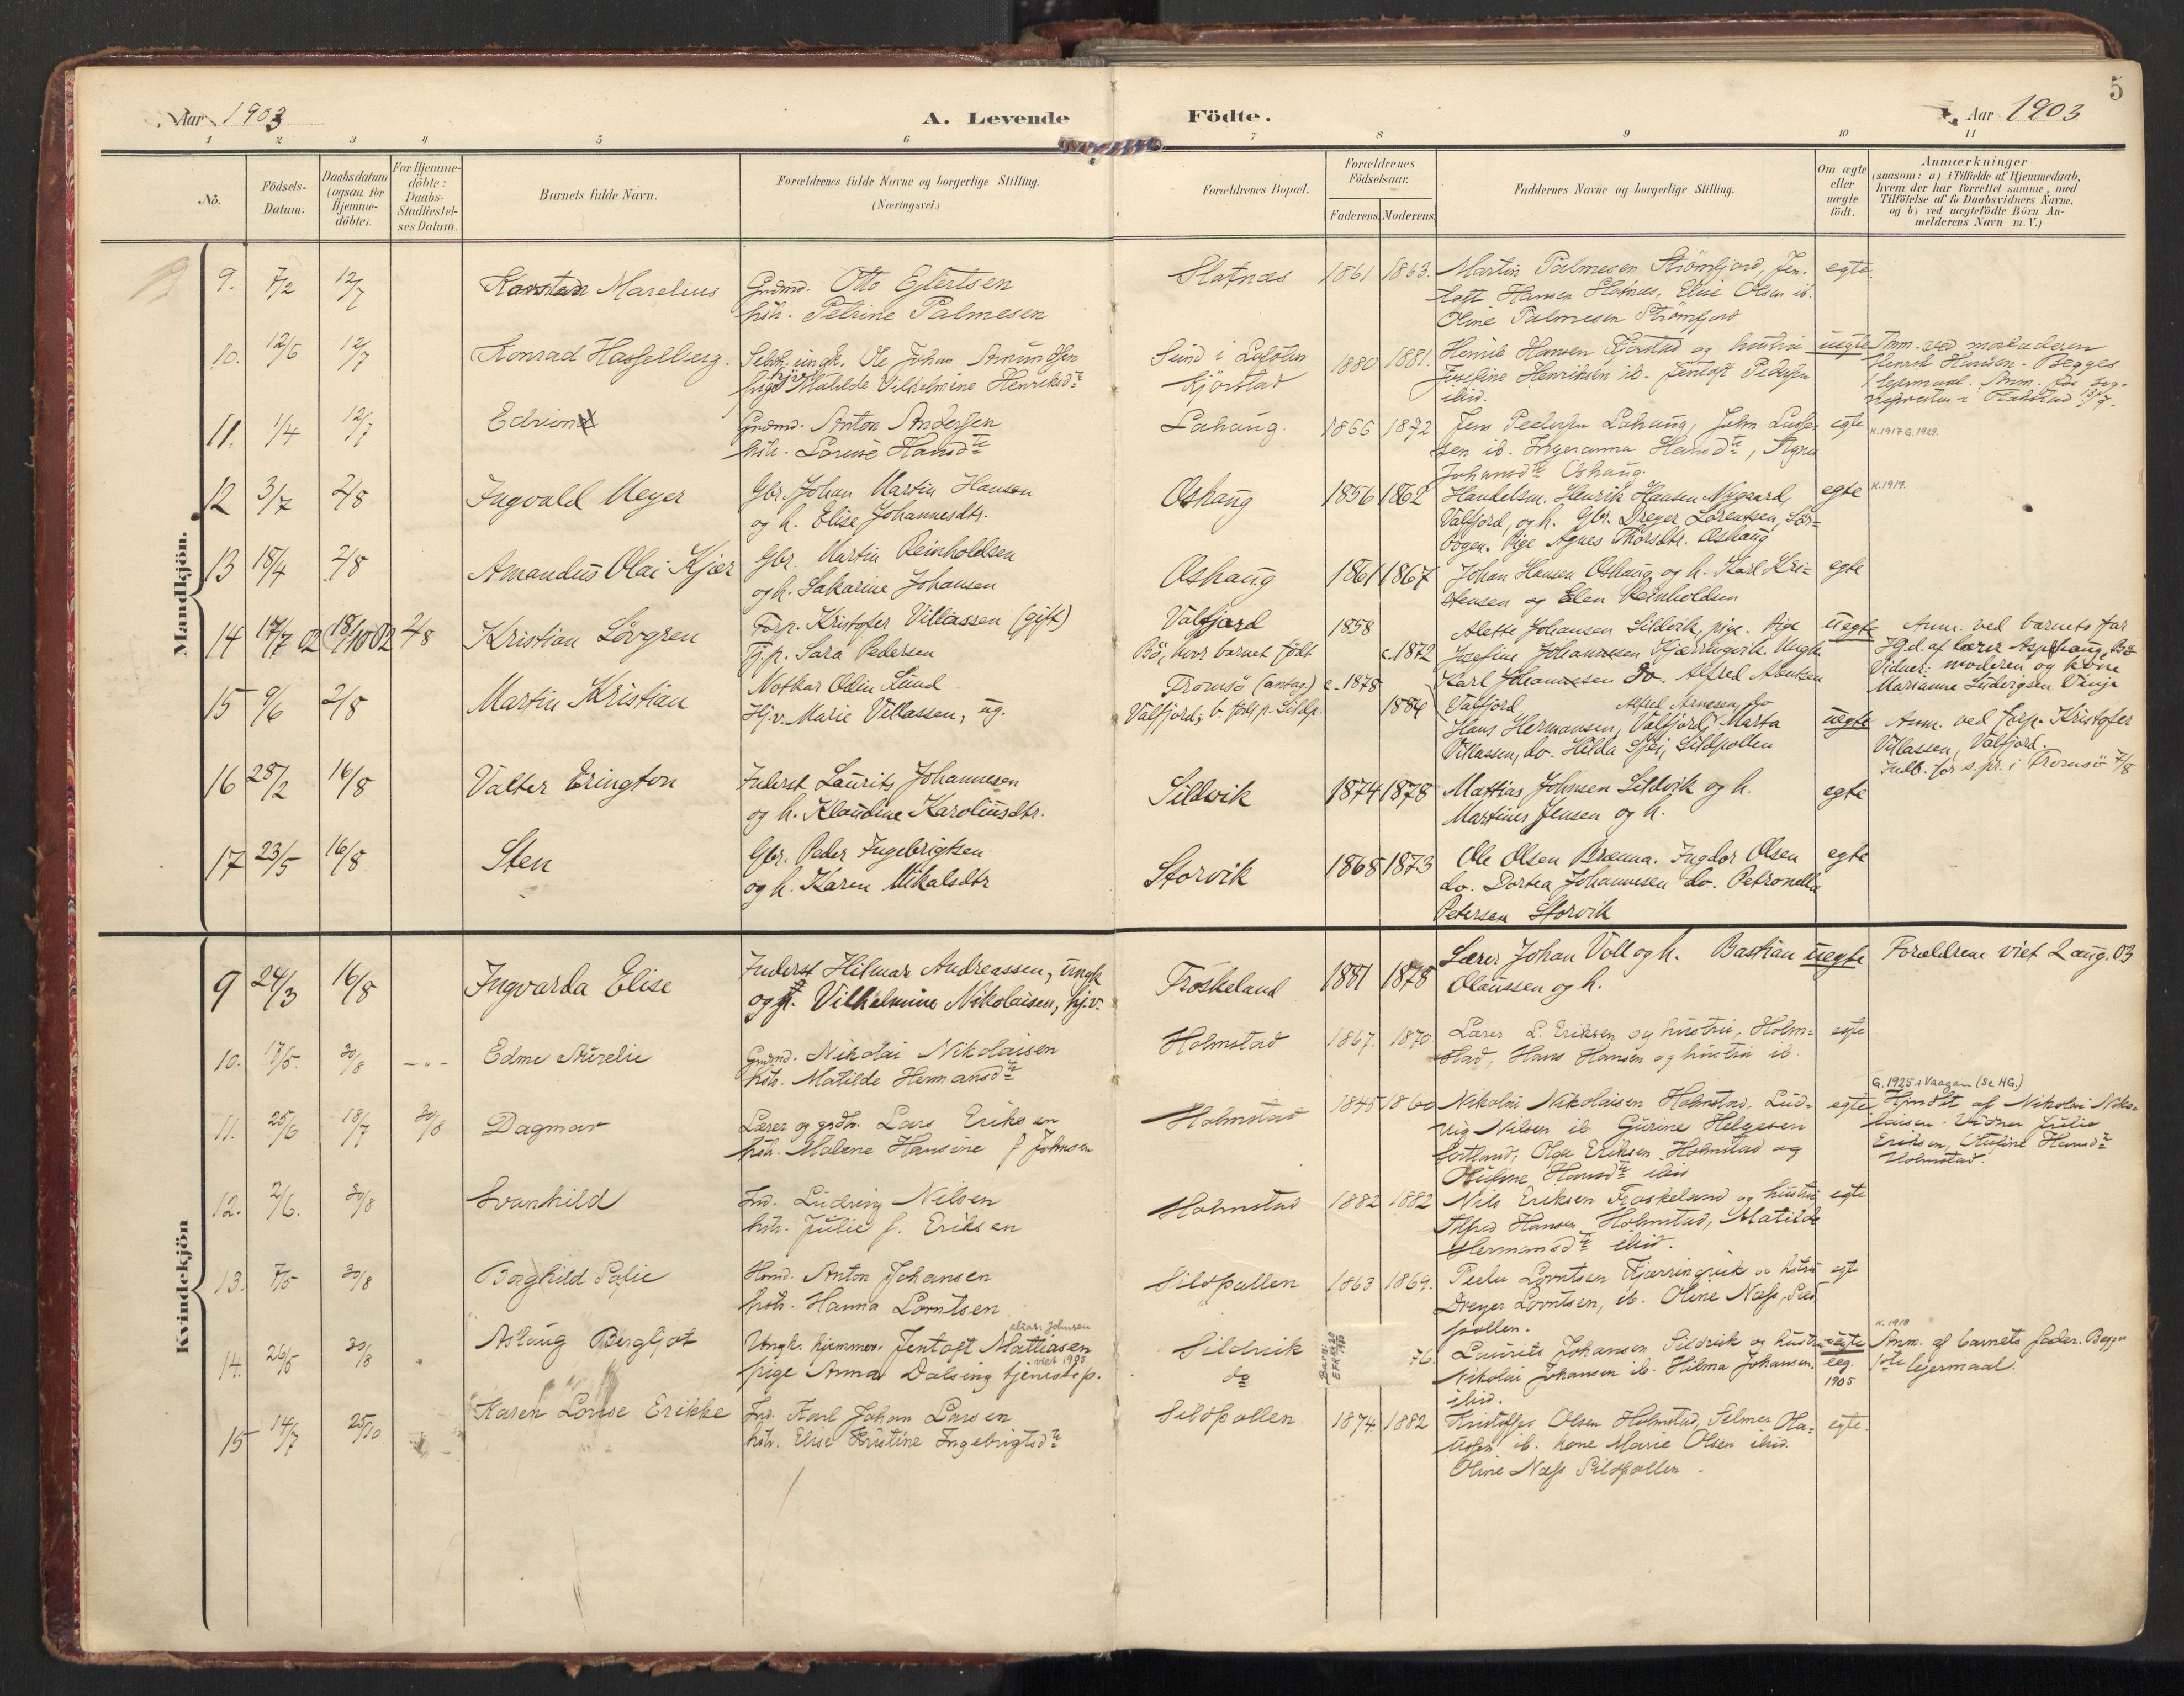 5
Aar 1903
A. Levende Födte.
Aar 1903
1 2 3 4 5 6 7 8 9 10 11
No.
Födsels-
Datum.
Daabsdatum
(ogsaa for
Hjemme-
döbte).
For Hjemme-
döbte:
Daabs-
Stadfæstel-
ses Datum.
Barnets fulde Navn.
Forældrenes fulde Navne og borgerlige Stilling.
(Næringsvei.)
Forældrenes Bopæl.
Forældrenes
Födselsaar.
Faderens. Moderens.
Faddernes Navne og borgerlige Stilling.
Om ægte
eller
uægte
födt.
Anmærkninger
(saasom: a) i Tilfælde af Hjemmedaab,
hvem der har forrettet samme, med
Tilföielse af to Daabsvidners Navne,
og b) ved uægtefödte Börn An-
melderens Navn m. V.)
Mandkjön.
9. 7/2 12/7 Karsten Marelius
Grdmd. Otto Ejlertsen
hstr. Petrine Palmesen
Slotnæs 1861 1863.
Martin Palmesen Strömfjord, Jen-
toft Hansen Slotnæs, Elise Olsen ib.
Oline Palmesen Strömfjord
egte.
10. 12/6 12/7 Konrad Hasselberg.
Selvh. ungk. Ole Johan Amundsen
pige Matilde Vilhelmine Henriksdtr
Sund i Lofoten
Kjörstad
1880 1881.
Henrik Hansen Kjörstad og hustru
Josefine Henriksen ib. Jentoft Pedersen
ibid.
uegte
Anm. ved morfaderen
Henrik Hansen. Begges
1 lejermaal.
11. 1/4 12/7 Edvin
Grdmd. Anton Andersen
hstr. Lovise Hansdtr
Lahaug. 1866 1872
Jens Pedersen Lahaug, John Lasse-
sen ib. Ingeranna Hansdtr, Agnes
Johansdtr Oshaug.
egte K.1917 G.1929.
12 3/7 2/8 Ingvald Meyer
Gbr. Johan Martin Hansen
og h. Elise Johannesdtr.
Oshaug 1856 1862
Handelsm. Henrik Hansen Nygaard,
Valfjord, og h. Gbr. Dreyer Lorentsen, Sör-
vogen. Pige Agnes Thorsdtr. Oshaug
egte K.1917.
13 18/4 2/8 Amandus Olai Kjær
Gbr. Martin Reinholdsen
og h. Sakarine Johansen
Oshaug 1861 1867
Johan Hansen Oshaug og h. Karl Kri-
stensen og Elen Reinholdsen
egte
14 17/7 02 18/10 02 2/8 Kristian Lövgren
Forp. Kristofer Villassen (gift)
Tj.p. Sara Pedersen
Valfjord
Bö, hvor barnet födt
1858
c.1872
Alette Johansen Sildvik, pige. Pige
Josefine Johannesen Kjærringvik. Ungk.
Karl Johannesen do. Alfred Arntsen
Valfjord
uegte
Anm. ved barnets far
Hj.d. af lærer Aspehaug, Bö
Vidner: moderen og kone
Marianne Ludvigsen Vinje
15 9/6 2/8 Martin Kristian
Notkar Odin Lund
Hj.v. Marie Villassen, ug.
Tromsö (antag)
Valfjord; b. födt p. Sildp.
c. 1878
1884
Alfred Arnesen do
Hans Hermansen, Valfjord, Marta
Villassen, do. Hilda Sjöj, Sildpollen
uegte
Anm. ved forp. Kristofer
Villassen, Valfjord.
Indb. for s. pr. i Tromsö 7/8
16 28/2 16/8 Valter Erington
Inderst Laurits Johannesen
og h. Klaudine Karoliusdtr.
Sildvik 1874 1878
Mattias Johnsen Sildvik og h.
Martines Jensen og h.
egte
17 23/5 16/8 Sten
Gbr. Peder Ingebrigtsen
og h. Karen Mikalsdtr
Storvik 1868 1873
Ole Olsen Brænna. Ingdor Olsen
do. Dortea Johannesen do. Petronella
Petersen Storvik
egte
Kvindekjön
9 24/3 16/8 Ingvarda Elise
Inderst Hilmar Andreassen, ungk
og p. Vilhelmine Nikolaisen, hj.v.
Froskeland 1881 1878
Lærer Johan Voll og h. Bastian
Olaussen og h.
uegte
Forældrene viet 2 aug. 03
10. 17/5. 30/8 - „ - Edme Aurelie
Grdmd. Nikolai Nikolaisen
hstr. Matilde Hermansdtr
Holmstad 1867. 1870.
Lærer L. Eriksen og hustru, Holm-
stad, Hans Hansen og hustru ib.
egte
11. 25/6 18/7 30/8 Dagmar
Lærer og grdbr. Lars Eriksen
hstr. Malene Hansine f Johnsen
Holmstad 1845 1860
Nikolai Nikolaisen Holmstad, Lud-
vig Nilsen ib. Gurine Helgesen
Sortland, Olga Eriksen Holmstad og
Otuline Hansdtr ibid
egte
G. 1925 i Vaagan (Se HG.)
Hjmdbt af Nikolai Niko-
laisen. Vidner Julie
Eriksen, Otuline Hansdtr
Holmstad.
12. 2/6. 30/8 Svanhild
Ind. Ludvig Nilsen
hstr. Julie f. Eriksen
Holmstad 1882 1882
Nils Eriksen Froskeland og hustru
Alfred Hansen Holmstad, Matilde
Hermansdtr ibid.
egte
13. 7/5 30/8 Borghild Sofie
Hmd. Anton Johansen
hstr. Hanna Lorntsen
Sildpollen 1863 1869.
Peder Lorntsen Kjærringvik og hstru
Dreyer Lorntsen, ib. Oline Næss, Sild
pollen.
egte
14. 26/5 30/8 Aslaug Bergljot
alias: Johnsen
Ungk. hjemmev. Jentoft Mattiasen
viet 1905
pige Anna Dalsing tjenestep.
Sildvik
do
76.
Laurits Johansen Sildvik og hustru
Nikolai Johansen ib. Hilma Johansen
ibid.
uegte
leg.
1905
K. 1918
Anm. af barnets fader. Begges
1ste lejermaal.
15 14/7 25/10 Karen Lovise Erikke
Ind. Karl Johan Larsen
hstr. Elise Kristine Ingebrigtsdtr
Sildpollen 1874. 1882
Kristoffer Olsen Holmstad, Selmer Ola-
ussen ib. kone Marie Olsen ibid.
Oline Næss Sildpollen.
egte.